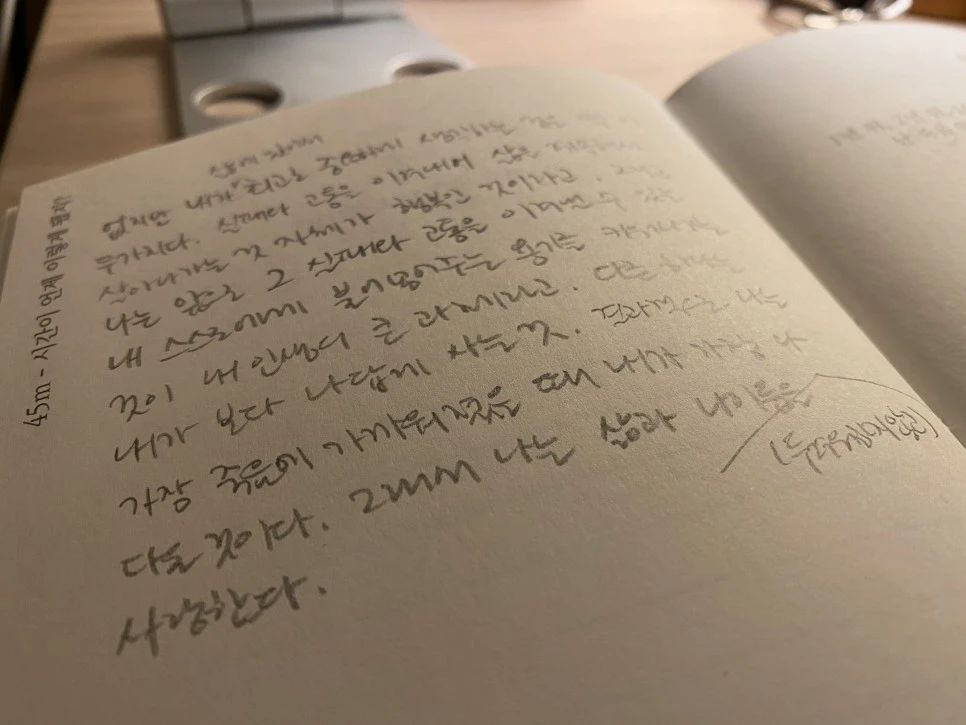 45m - 시간이 언제 이렇게 됐지?
삶에 있어서
없지만 내가 최고로 중요하게 생각하는 것은
두가지다. 실패라 고통을 이겨내어 삶을
살아가는 것 자체가 행복인 것이라고.
나는 앞으로 그 실패라 고통을 이겨낼 수 있는
내 스스로에게 불어넣어주는 용기를 키워나가는
것이 내 인생의 큰 과제라고. 다른 하나는
내가 보다 나답게 사는 것. 나는
가장 죽음에 가까워졌을 때 내가 가장 나
다울 것이다. 그래서 나는 삶과 나이듦을
(두려워하지않고)
사랑한다.